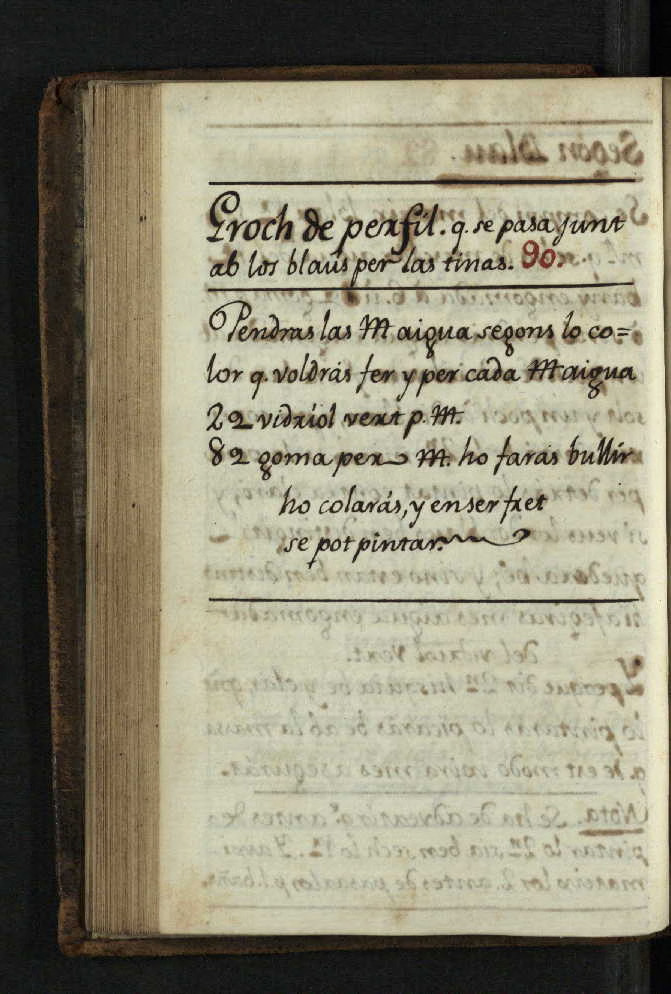 Groch de perfil. q. se pasa junt
ab los blaús per las tinas. 90.
Pendras las M aigua segons lo co=
lor q. voldrás fer y per cada M aigua
22 vidriol vert p. M.
82 goma per M. ho farás bullir
ho colarás, y en ser fret
se pot pintar.